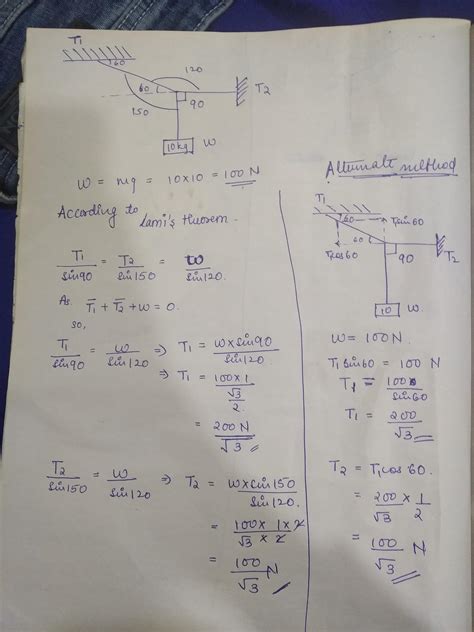 T1
60
120
60
150
90
T2
10kg
W
W = mg = 10×10 = 100 N
According to Lami's theorem.
T1/sin90 = T2/sin150 = W/sin120.
As T̄1 + T̄2 + w = 0.
so,
T1/sin90 = W/sin120 ⇒ T1 = W×sin90/sin120
⇒ T1 = 100×1/(√3/2)
= 200 N/√3
T2/sin150 = W/sin120 ⇒ T2 = W×sin150/sin120.
= 100×1×2/√3×2
= 100/√3 N
Alternate method
T1
60
T1sin60
60
T1cos60
90
T2
10
W.
W = 100N.
T1 sin60 = 100 N
T1 = 100/sin60
T1 = 200/√3
T2 = T1cos 60.
= 200/√3 × 1/2
= 100/√3 N